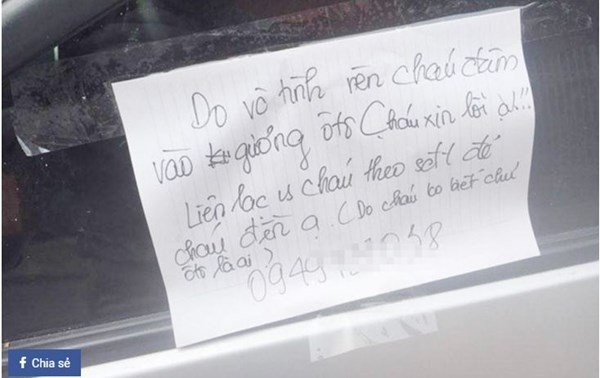 Do vô tình nên cháu đâm
vào gương ôtô Cháu xin lỗi ạ!!
Liên lạc vs cháu theo sđt để
cháu đền ạ. (Do cháu ko biết chủ
ôtô là ai)
0949 038
Chia sẻ